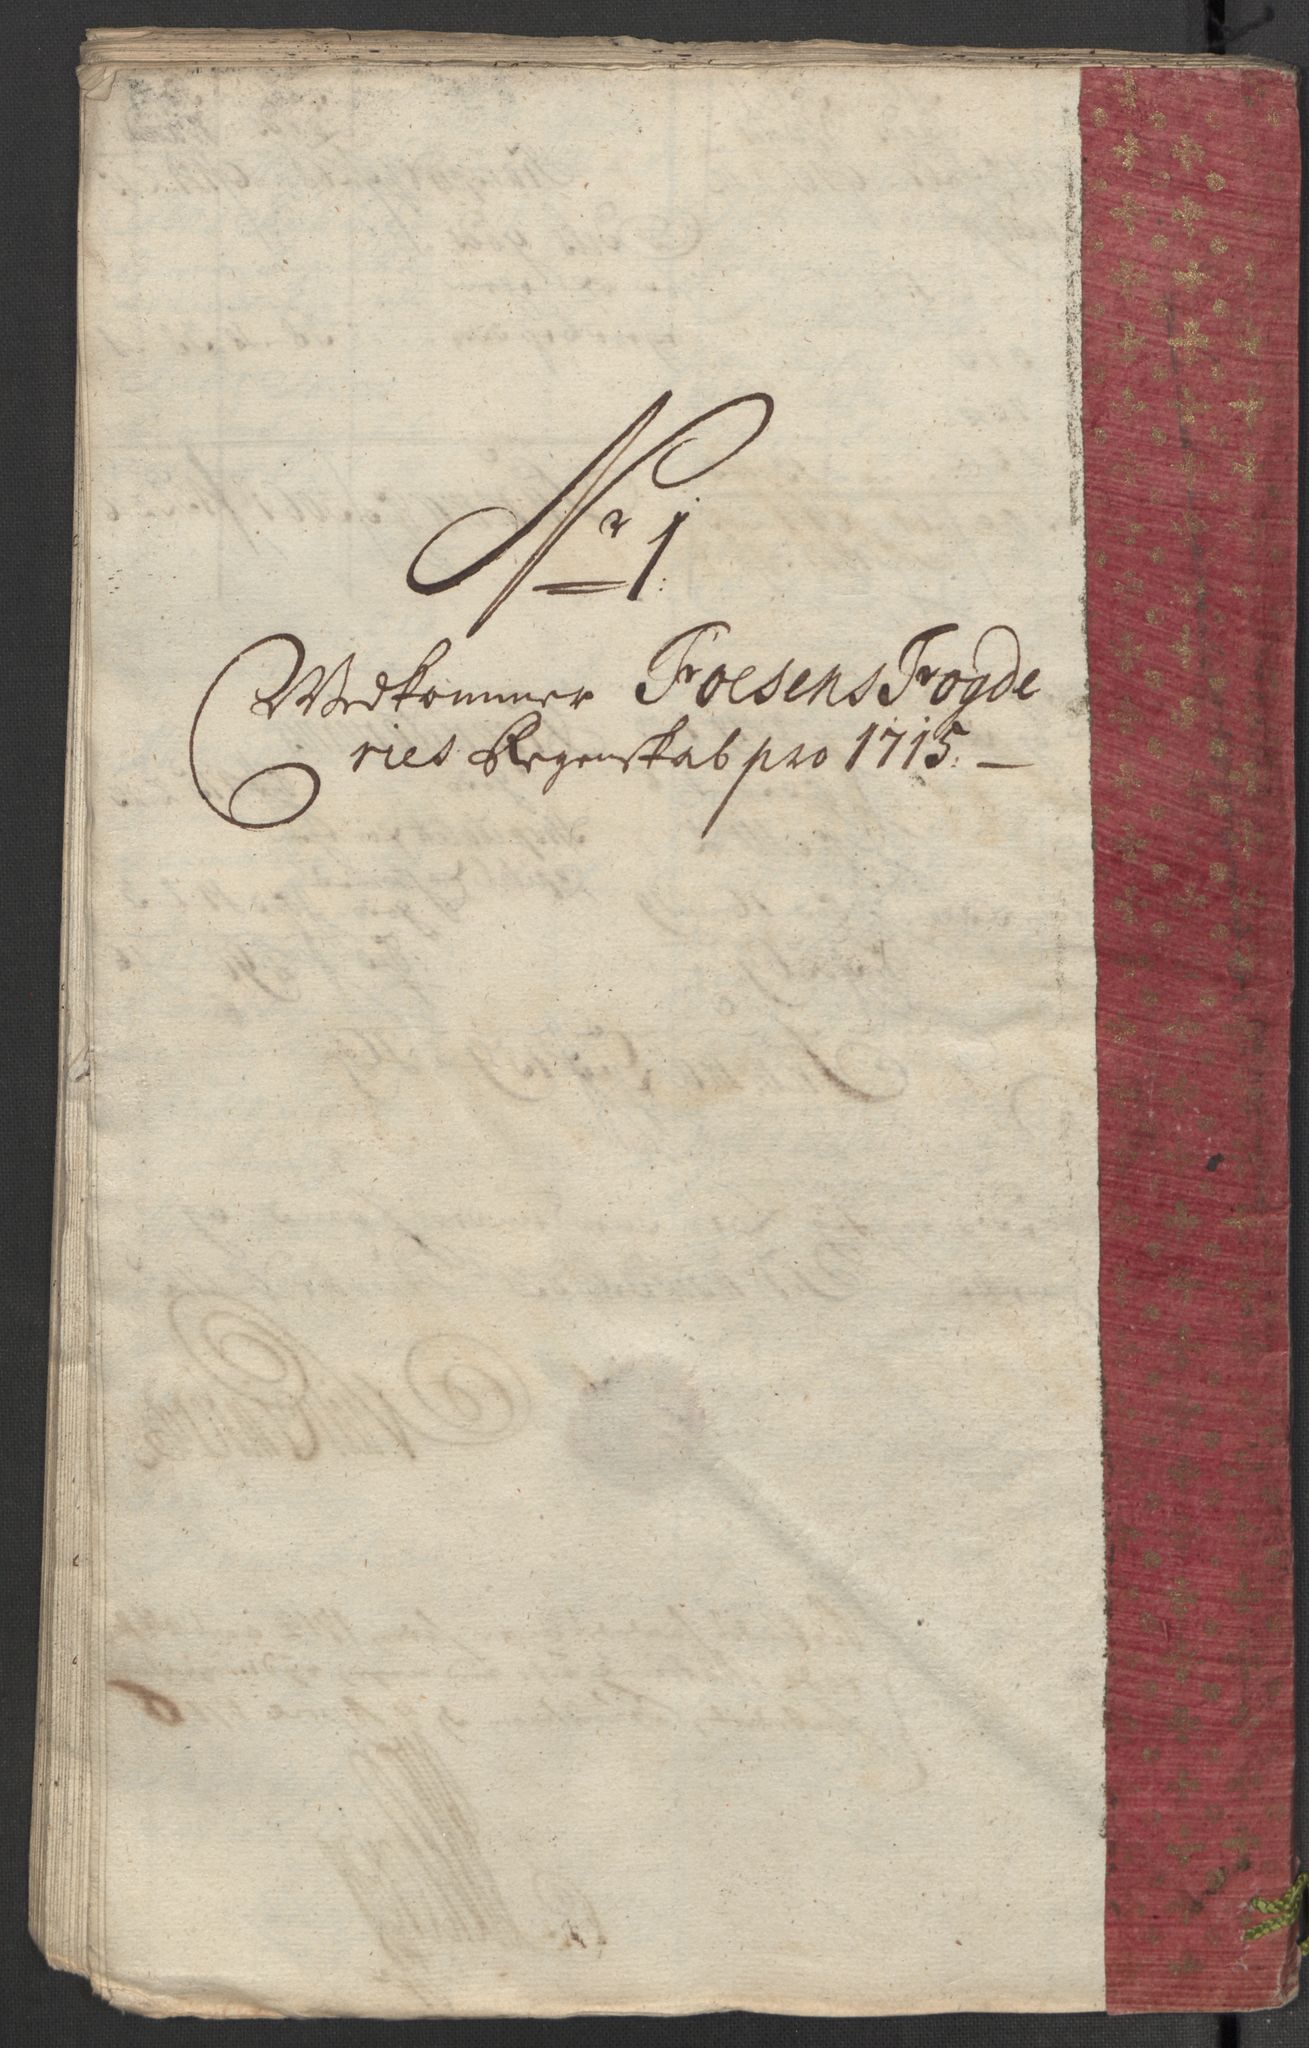 Nr 1.
Vedkommer Foesens Fogde
ries Regenskab pro 1715. —